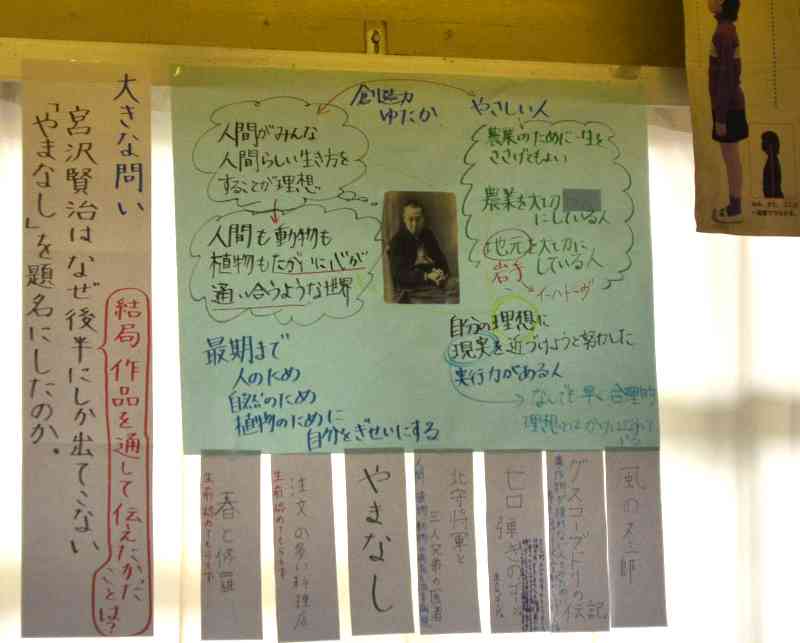 大きな問い
宮沢賢治はなぜ後半にしか出てこない
「やまなし」を題名にしたのか。
結局 作品を通して伝えたかった
ことは?
創造力
ゆたか
やさしい人
人間がみんな
人間らしい生き方を
することが理想
人間も動物も
植物もたがいに心が
通い合うような世界
農業のために一生を
ささげてもよい
農業を大切
にしている人
地元を大切に
している人
岩手
イーハトーヴ
最期まで
人のため
自然のため
植物のために
自分をぎせいにする
自分の理想に
現実を近づけようと努力した
実行力がある人
なんでも早く合理的
理想とは
春と修羅
生前認めてもらえず
注文の多い料理店
生前認めてもらえず
やまなし
北守将軍と
三人兄弟の医者
セロ弾きのゴーシュ
グスコーブドリの伝記
風の又三郎